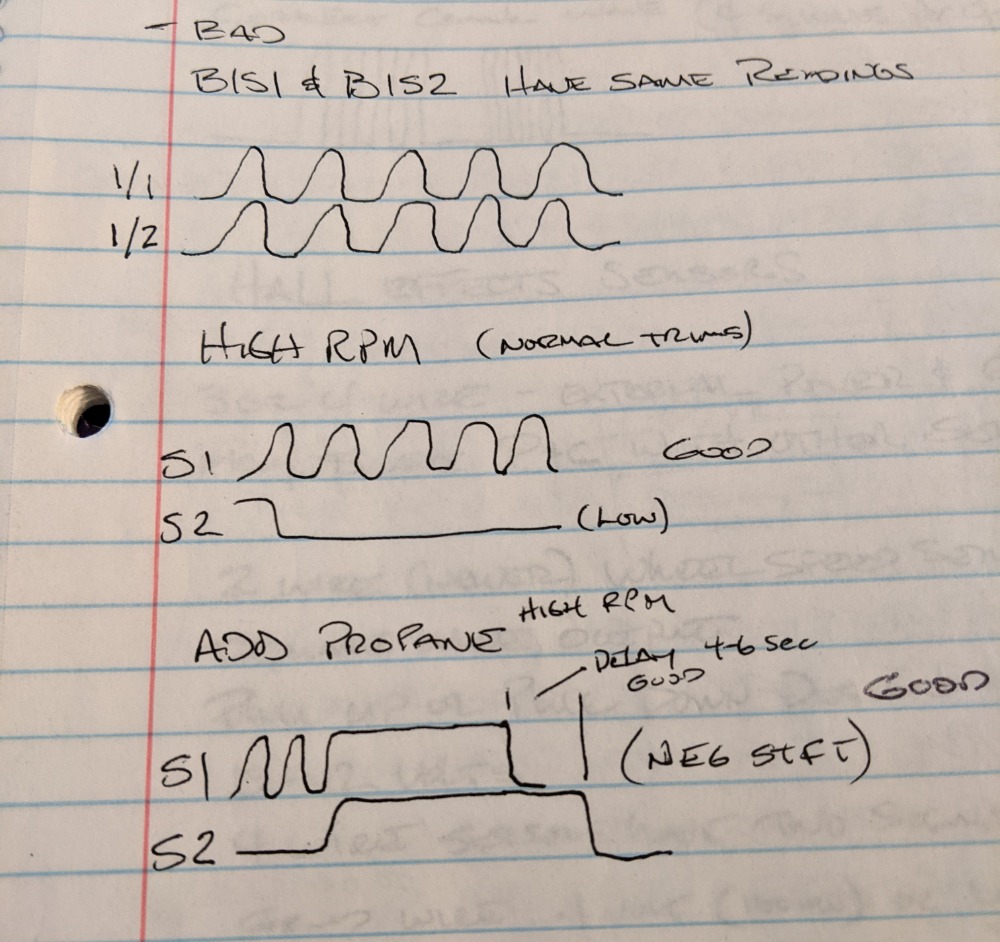 - BAD
B1S1 & B1S2 HAVE SAME READINGS
1/1
1/2
HIGH RPM (NORMAL TRIMS)
S1 GOOD
S2 (LOW)
HIGH RPM
ADD PROPANE
DELAY 4-6 SEC
GOOD
GOOD
S1 (NEG STFT)
S2
HALL EFFECTS SENSORS